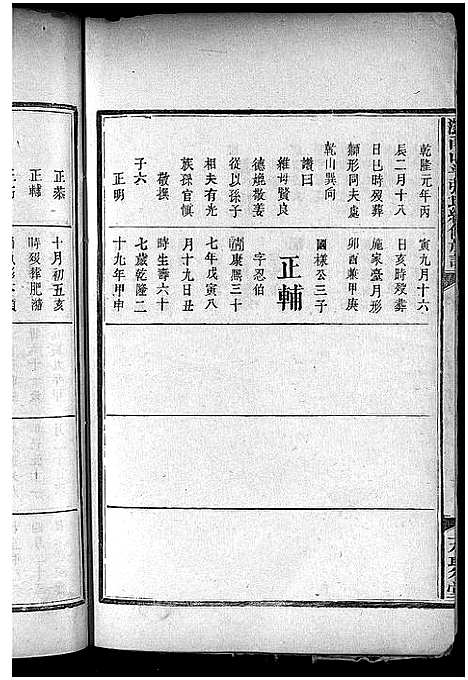 乾隆元年丙
辰二月十八
日巳時歿葬
獅形同夫處
乾山巽向
讚曰
維母賢良
德嬈敬姜
從以孫子
相夫有光
族孫官慎
敬撰
子六
正明
寅九月十六
日亥時歿葬
施家臺月形
卯酉兼甲庚
國樣公三子
正輔
字忍伯
清康熙三十
七年戊寅八
月十九日丑
時生壽六十
七歲乾隆二
十九年甲申
正恭
正輔
十月初五亥
時歿葬肥